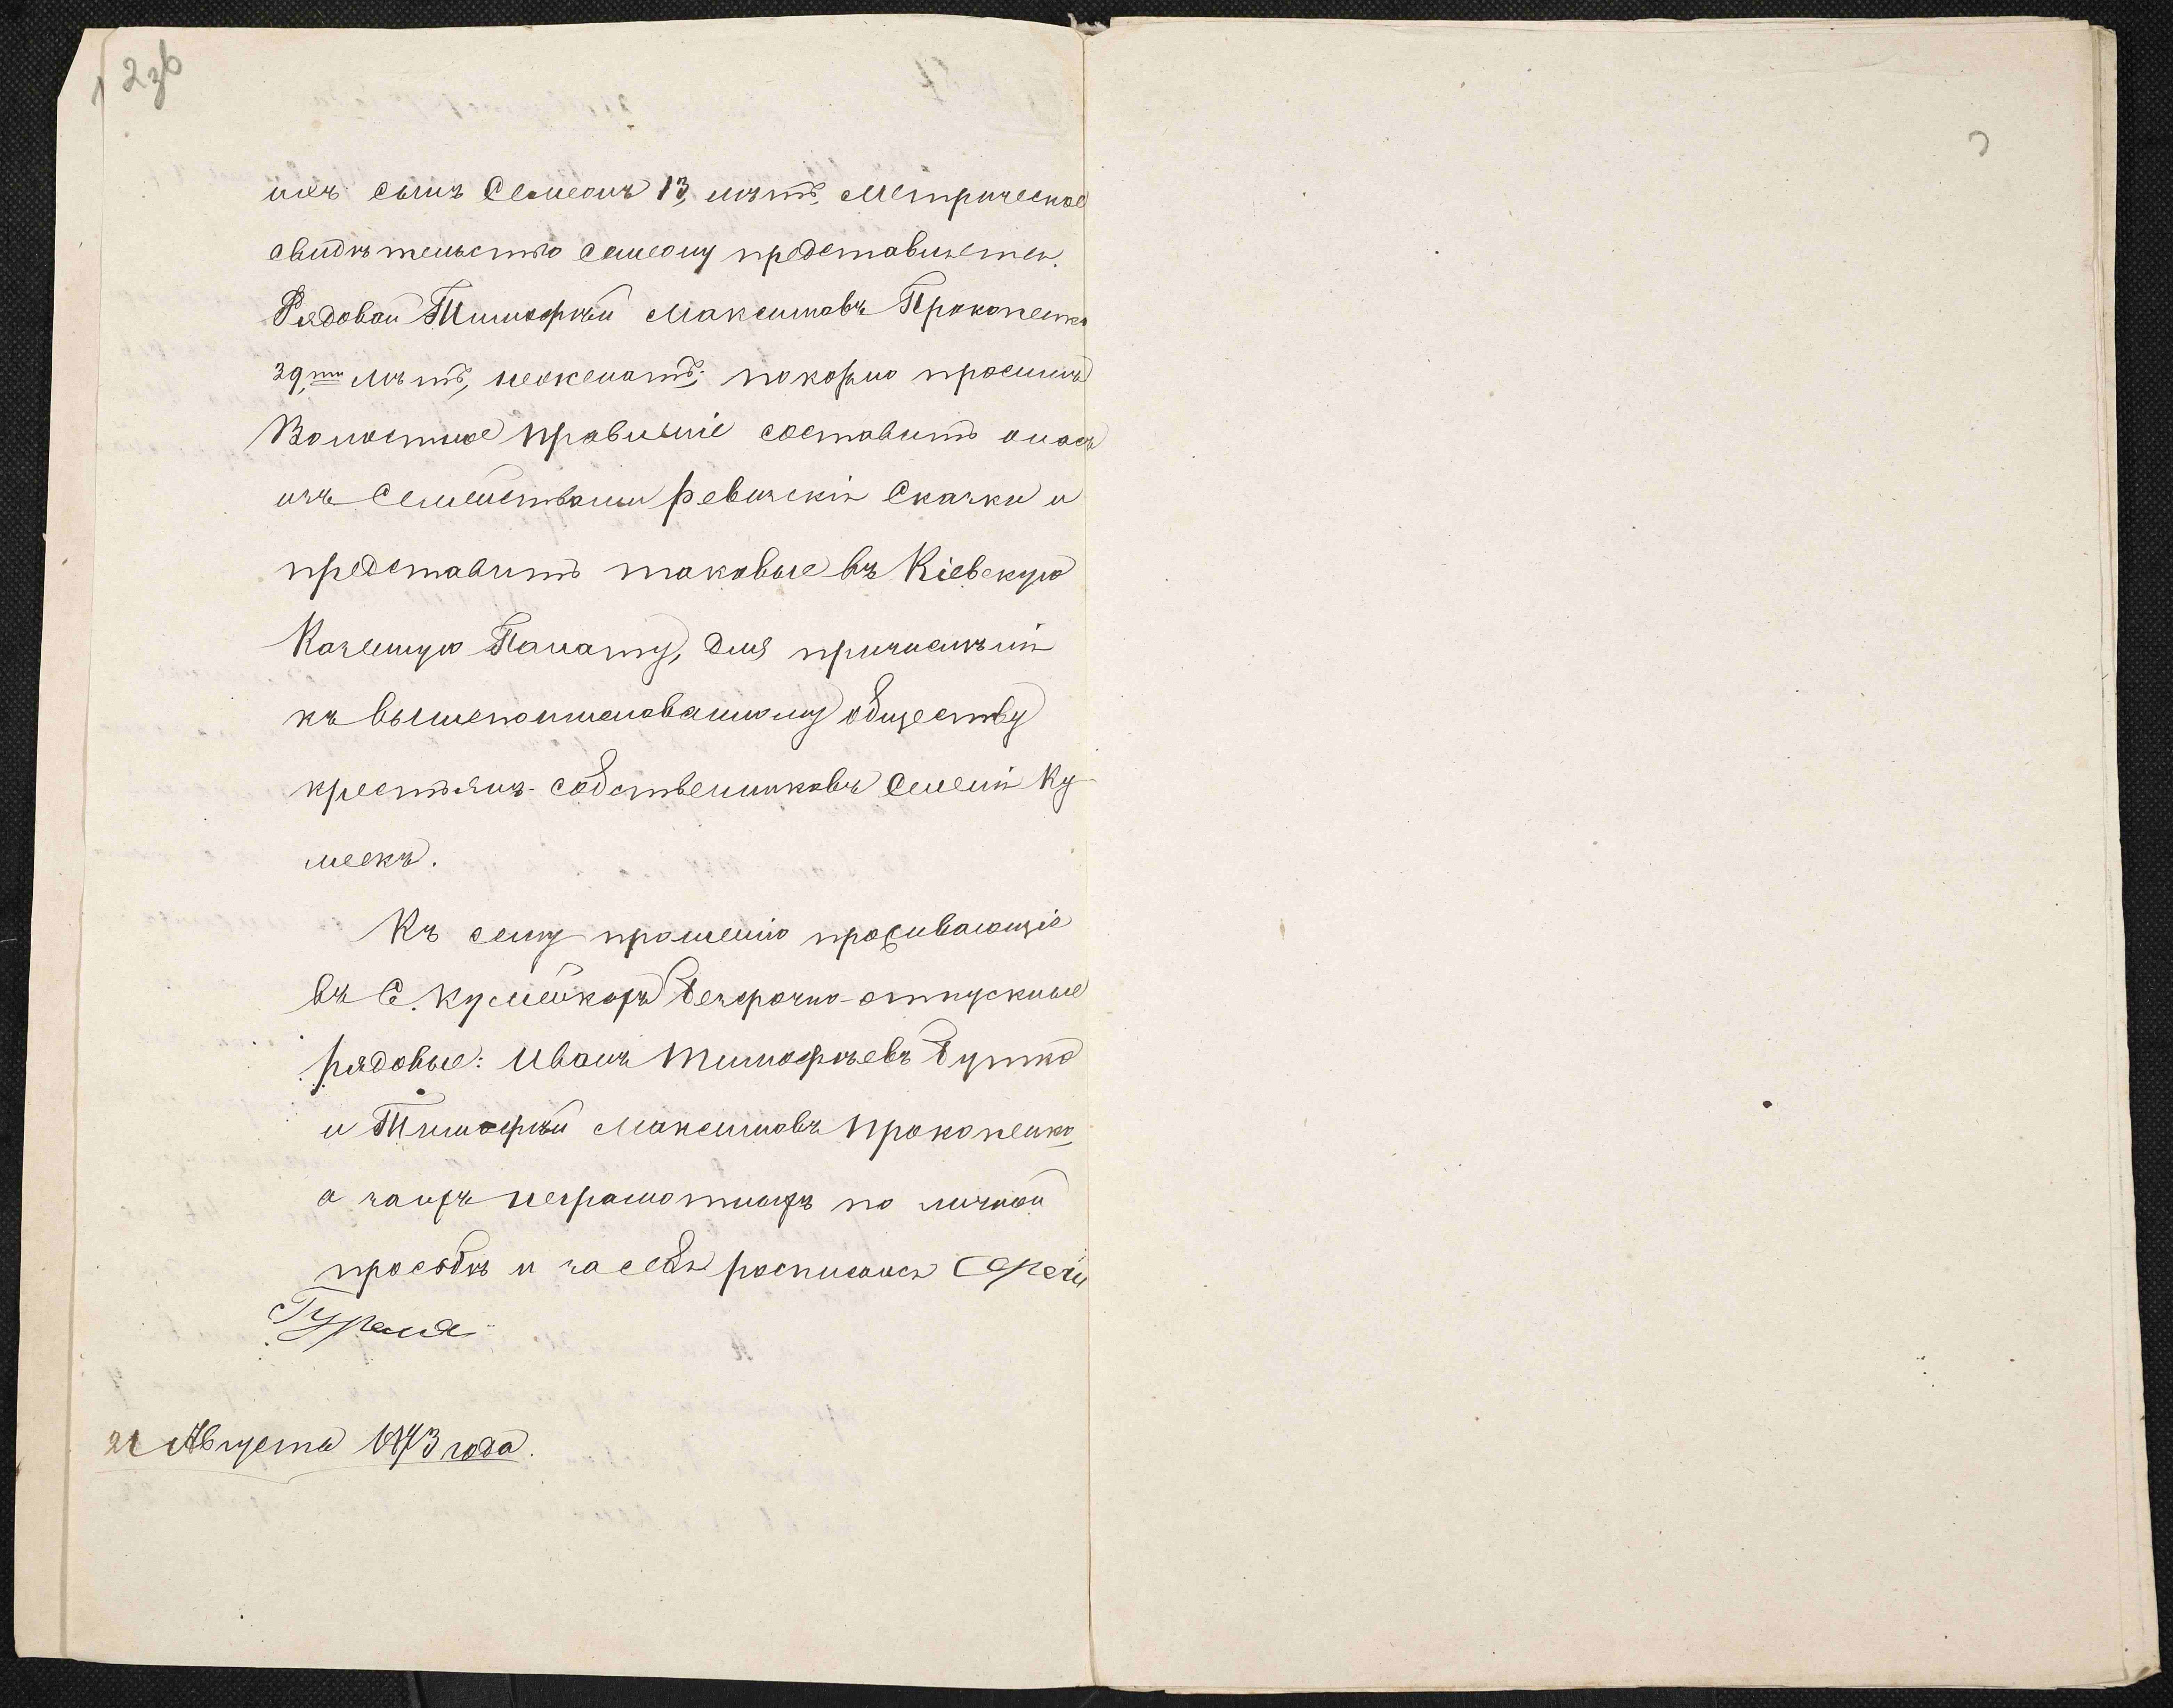 2зв
ихъ сынъ Семеонъ 13, лѣтъ, Метрическое
свидѣтельство Семеону представляется.
Рядовой Тимофѣй Максимовъ Прокопенко
39,ти лѣтъ, неженатъ; покорно просимъ
Волостное правленіе составить о насъ
изъ Семействами ревизскія Сказки и
представить таковые въ Кіевскую
Казенную Палату, для причисленія
къ вышепоименованному обществу
крестьянъ-собственниковъ Селенія Ку
меекъ.
Къ сему прошенію проживающіе
въ С. Кумейкахъ безсрочно-отпускные
рядовые: Иванъ Тимофѣевъ Бутко
и Тимофѣй Максимовъ Прокопенко,
а за ихъ неграмотныхъ по личной
просьбѣ и за себя росписался Сергѣй
21 Августа 1873 года.